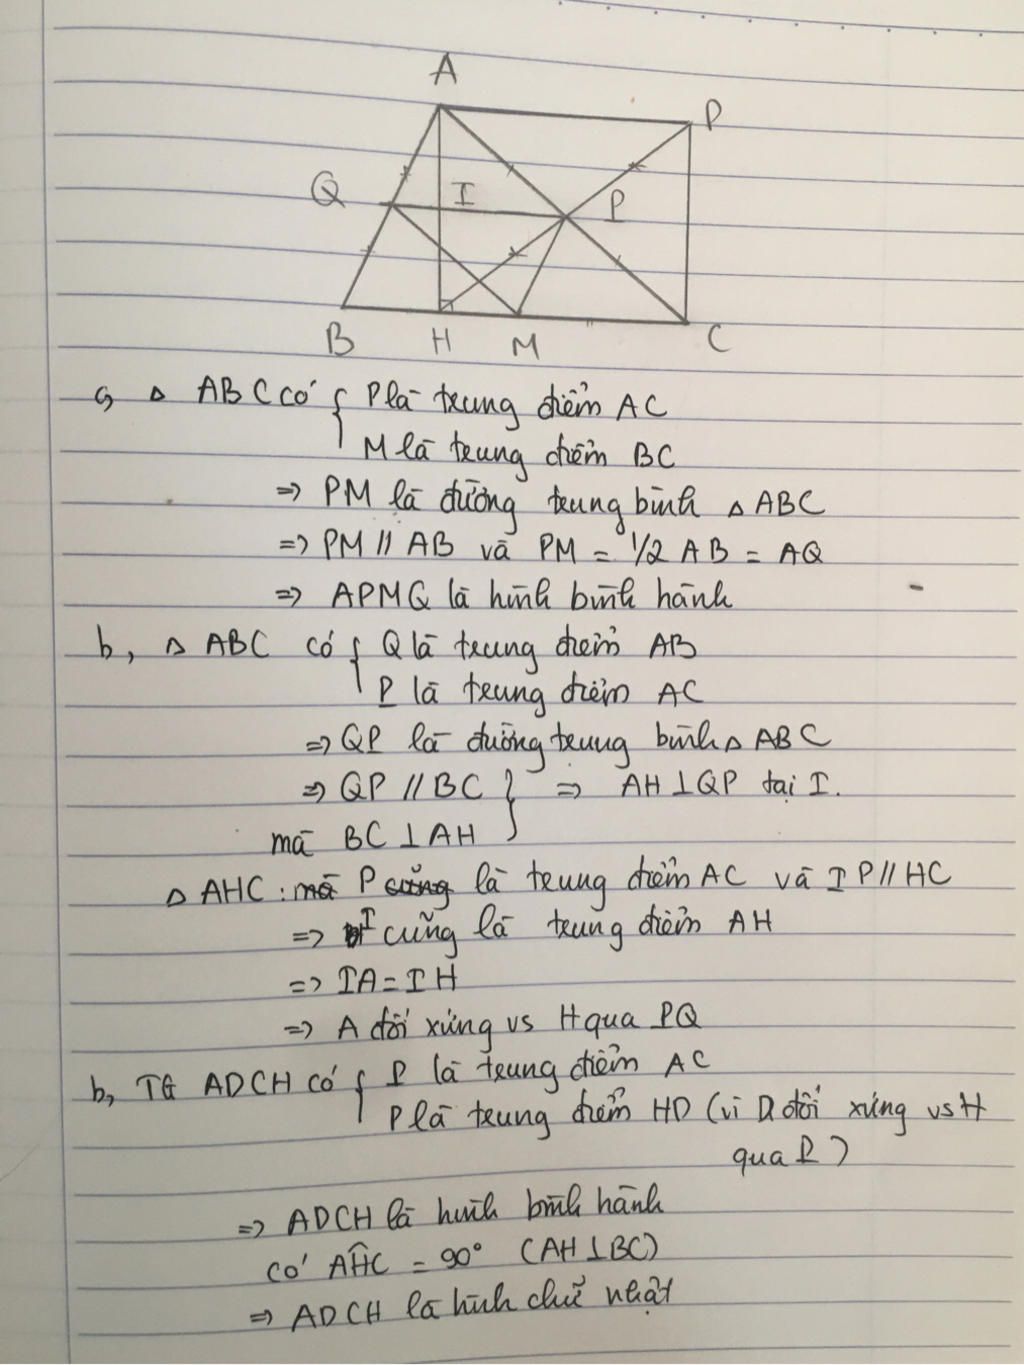 A
D
Q
I
P
B
H
M
C
a, Δ ABC có { P là trung điểm AC
M là trung điểm BC
=> PM là đường trung bình Δ ABC
=> PM // AB và PM = 1/2 AB = AQ
=> APMQ là hình bình hành
b, Δ ABC có { Q là trung điểm AB
P là trung điểm AC
=> QP là đường trung bình Δ ABC
=> QP // BC } => AH ⊥ QP tại I.
mà BC ⊥ AH
Δ AHC : mà P cũng là trung điểm AC và IP // HC
=> I cũng là trung điểm AH
=> IA = IH
=> A đối xứng vs H qua PQ
b, TG ADCH có { P là trung điểm AC
P là trung điểm HD (vì D đối xứng vs H
qua P)
=> ADCH là hình bình hành
có AĤC = 90° (AH ⊥ BC)
=> ADCH là hình chữ nhật